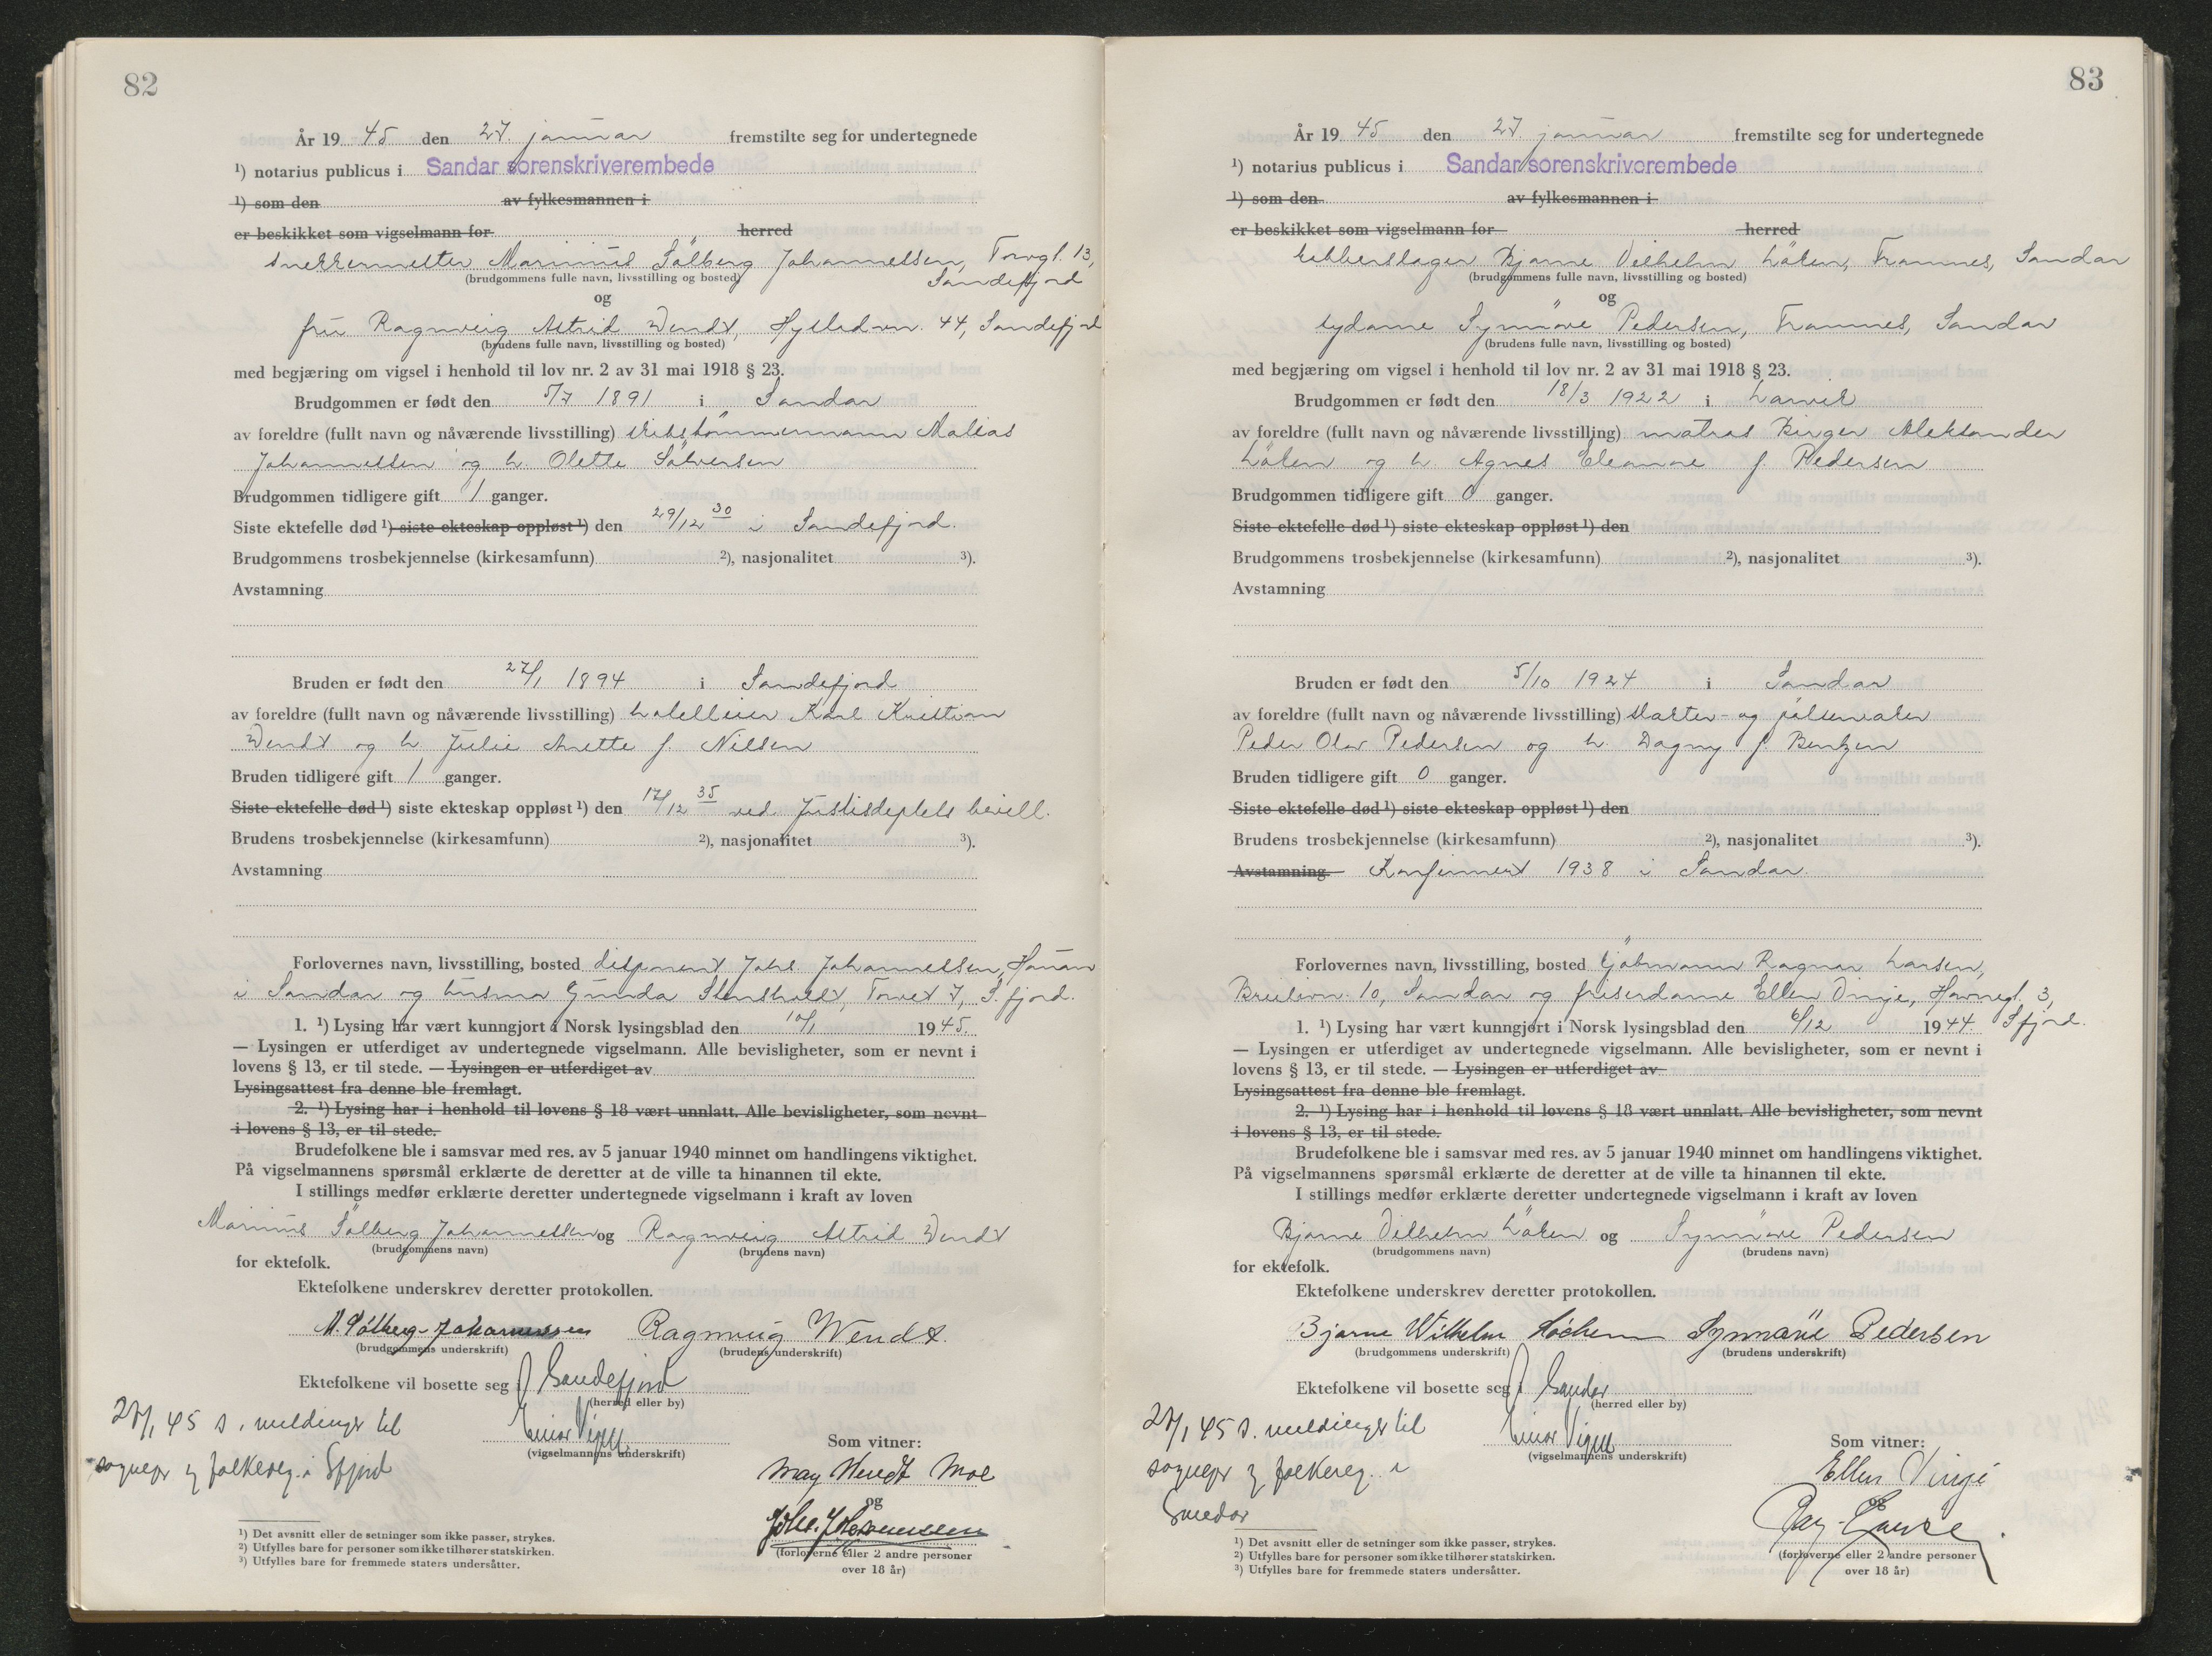 82
År 19 45 den 27. januar fremstilte seg for undertegnede
¹) notarius publicus i Sandar sorenskriverembede
¹) som den av fylkesmannen i
er beskikket som vigselmann for herred
snekkermester Marinius Sölberg Johannessen, Torvgt. 13,
Sandefjord
(brudgommens fulle navn, livsstilling og bosted)
og
fru Ragnveig Astrid Wendt, Hystadvn. 44, Sandefjord
(brudens fulle navn, livsstilling og bosted)
med begjæring om vigsel i henhold til lov nr. 2 av 31 mai 1918 § 23.
Brudgommen er født den 5/7 1891 i Sandar
av foreldre (fullt navn og nåværende livsstilling) skibstömmermann Matias
Johannessen og h. Olette Sölversen
Brudgommen tidligere gift 1 ganger.
Siste ektefelle død ¹) siste ekteskap oppløst ¹) den 29/12 30 i Sandefjord.
Brudgommens trosbekjennelse (kirkesamfunn) ²), nasjonalitet ³).
Avstamning
Bruden er født den 27/1 1894 i Sandefjord
av foreldre (fullt navn og nåværende livsstilling) hotelleier Karl Kristian
Wendt og h. Julie Anette f. Nilsen
Bruden tidligere gift 1 ganger.
Siste ektefelle død ¹) siste ekteskap oppløst ¹) den 17/12 35 ved Justisdeptets bevill.
Brudens trosbekjennelse (kirkesamfunn) ²), nasjonalitet ³).
Avstamning
Forlovernes navn, livsstilling, bosted disponent Johs Johannessen,
i Sandar og husmor Gunda Stensholt, Torvet 7, S.fjord.
1. ¹) Lysing har vært kunngjort i Norsk lysingsblad den 10/1 1945.
— Lysingen er utferdiget av undertegnede vigselmann. Alle bevisligheter, som er nevnt i
lovens § 13, er til stede. — Lysingen er utferdiget av
Lysingsattest fra denne ble fremlagt.
2. ¹) Lysing har i henhold til lovens § 18 vært unnlatt. Alle bevisligheter, som nevnt
i lovens § 13, er til stede.
Brudefolkene ble i samsvar med res. av 5 januar 1940 minnet om handlingens viktighet.
På vigselmannens spørsmål erklærte de deretter at de ville ta hinannen til ekte.
I stillings medfør erklærte deretter undertegnede vigselmann i kraft av loven
Marinius Sölberg Johannessen og Ragnveig Astrid Wendt
(brudgommens navn) (brudens navn)
for ektefolk.
Ektefolkene underskrev deretter protokollen.
M. Sölberg-Johannessen Ragnveig Wendt.
(brudgommens underskrift) (brudens underskrift)
Ektefolkene vil bosette seg i Sandefjord
(herred eller by)
27/1 45 s. meldinger til
sognepr og folkereg. i Sfjord
Einar Vigen
(vigselmannens underskrift)
Som vitner:
May Wendt Moe
og
Johs. Johannessen
(forloverne eller 2 andre personer
over 18 år)
¹) Det avsnitt eller de setninger som ikke passer, strykes.
²) Utfylles bare for personer som ikke tilhører statskirken.
³) Utfylles bare for fremmede staters undersåtter.
83
År 19 45 den 27. januar fremstilte seg for undertegnede
¹) notarius publicus i Sandar sorenskriverembede
¹) som den av fylkesmannen i
er beskikket som vigselmann for herred
kobberslager Bjarne Vilhelm Löken, Framnes, Sandar
(brudgommens fulle navn, livsstilling og bosted)
og
sydame Synnöve Pedersen, Framnes, Sandar
(brudens fulle navn, livsstilling og bosted)
med begjæring om vigsel i henhold til lov nr. 2 av 31 mai 1918 § 23.
Brudgommen er født den 18/3 1922 i Larvik
av foreldre (fullt navn og nåværende livsstilling) matros Birger Aleksander
Löken og h. Agnes Eleonore f. Pedersen
Brudgommen tidligere gift 0 ganger.
Siste ektefelle død ¹) siste ekteskap oppløst ¹) den
Brudgommens trosbekjennelse (kirkesamfunn) ²), nasjonalitet ³).
Avstamning
Bruden er født den 5/10 1924 i Sandar
av foreldre (fullt navn og nåværende livsstilling) slakter- og pölsemaker
Peder Olav Pedersen og h. Dagny f. Bentzen
Bruden tidligere gift 0 ganger.
Siste ektefelle død ¹) siste ekteskap oppløst ¹) den
Brudens trosbekjennelse (kirkesamfunn) ²), nasjonalitet ³).
Avstamning Konfirmert 1938 i Sandar.
Forlovernes navn, livsstilling, bosted sjömann Ragnar Larsen,
10, Sandar og friserdame Ellen Vinje, Havnegt. 3,
Sfjord.
1. ¹) Lysing har vært kunngjort i Norsk lysingsblad den 6/12 1944
— Lysingen er utferdiget av undertegnede vigselmann. Alle bevisligheter, som er nevnt i
lovens § 13, er til stede. — Lysingen er utferdiget av
Lysingsattest fra denne ble fremlagt.
2. ¹) Lysing har i henhold til lovens § 18 vært unnlatt. Alle bevisligheter, som nevnt
i lovens § 13, er til stede.
Brudefolkene ble i samsvar med res. av 5 januar 1940 minnet om handlingens viktighet.
På vigselmannens spørsmål erklærte de deretter at de ville ta hinannen til ekte.
I stillings medfør erklærte deretter undertegnede vigselmann i kraft av loven
Bjarne Vilhelm Löken og Synnöve Pedersen
(brudgommens navn) (brudens navn)
for ektefolk.
Ektefolkene underskrev deretter protokollen.
Bjarne Wilhelm Löchen Synnöve Pedersen
(brudgommens underskrift) (brudens underskrift)
Ektefolkene vil bosette seg i Sandar
(herred eller by)
27/1 45 s. meldinger til
sognepr og folkereg. i
Sandar
Einar Vigen
(vigselmannens underskrift)
Som vitner:
Ellen Vinje
og
(forloverne eller 2 andre personer
over 18 år)
¹) Det avsnitt eller de setninger som ikke passer, strykes.
²) Utfylles bare for personer som ikke tilhører statskirken.
³) Utfylles bare for fremmede staters undersåtter.